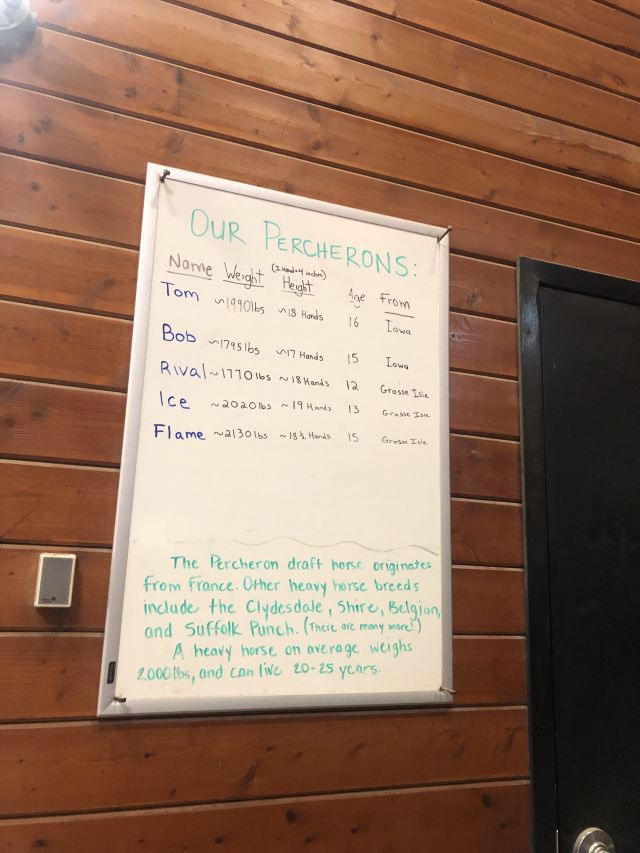 OUR PERCHERONS:
Name Weight (1 Hand=4 inches) Height Age From
Tom ~1990lbs ~18 Hands 16 Iowa
Bob ~1795lbs ~17 Hands 15 Iowa
Rival ~1770lbs ~18 Hands 12 Grosse Isle
Ice ~2020lbs ~19 Hands 13 Grosse Isle
Flame ~2130lbs ~18½ Hands 15 Grosse Isle
The Percheron draft horse originates
from France. Other heavy horse breeds
include the Clydesdale, Shire, Belgian,
and Suffolk Punch. (There are many more!)
A heavy horse on average weighs
2000lbs, and can live 20-25 years.